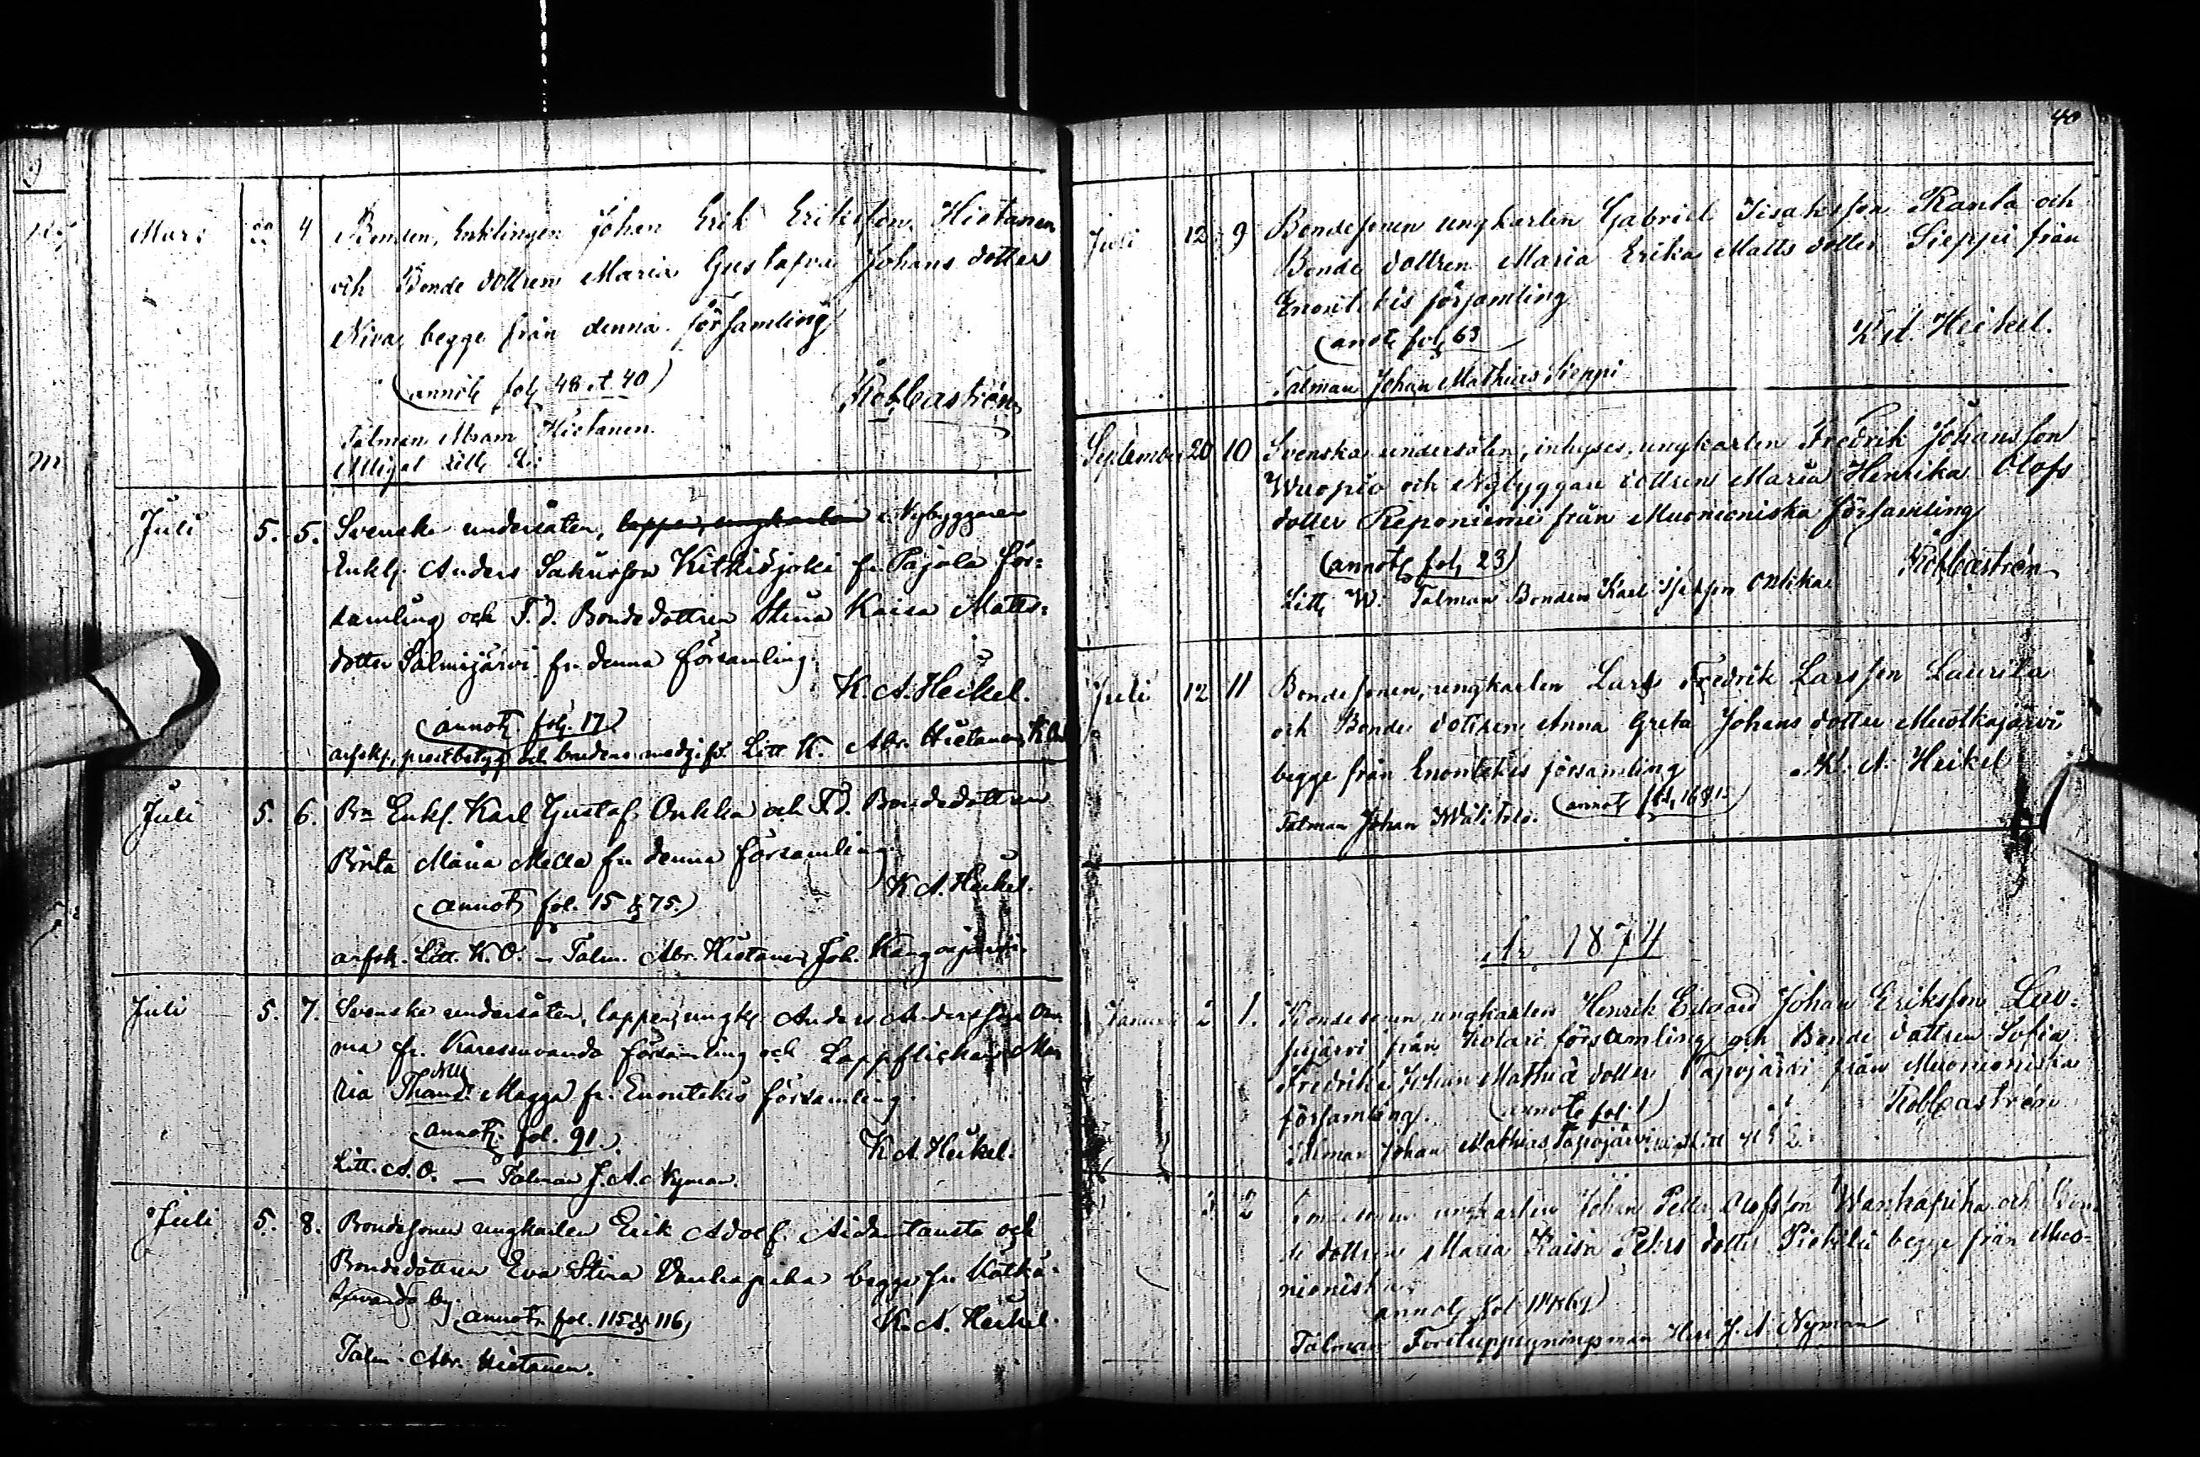 Mars 22 4 Bonden, Enklingen Johan Erik Eriksson Hietanen
och Bonde dottren Maria Gustafva Johans dotter
Niva, begge från denna församling
(annot fol 48 et 40)
Rob Castrén
Talman Abram Hietanen.
Alligat Litt
Juli 5. 5. Svenske undersåten, lappen, ungkarlen Nybyggaren
Enkl. Anders Sakrisson Kitkisjoki fr Pajala för:
samling och F.d. Bondedottren Stina Kaisa Matts:
dotter Salmijärvi fr. denna församling.
K. A. Heikel.
(annot fol. 17)
arfskf, prestbetyg och brudens medgift Litt K. Abr. Hietanen
Juli 5. 6. Bn Enkl. Karl Gustaf Onkka och F.d. Bondedottren
Brita Maria Mella fr denna församling
K A. Heikel.
(annot fol. 15 & 75.)
arfsk. Litt. K. O. – Talm. Abr. Hietanen Joh. Kangosjärvi.
Juli 5. 7. Svenske undersåten, lappen, ungk. Anders Andersson
ma fr. Karesuvando församling och Lappflickan Ma
ria Magga fr. Enontekis församling.
(annot. fol. 91.)
K A. Heikel.
Litt. A. O. — Talman J. A. Nyman.
Juli 5. 8. Bondesonen ungkarlen Erik Adolf Aidantausta och
Bondedottren Eva Stina Vanhapiha begge fr Kätkä-
suvando by.
(annot. fol. 115 & 116)
K. A. Heikel.
Talm. Abr. Hietanen.
40
Juli 12 9 Bondesonen ungkarlen Gabriel Isaksson Ranta och
Bonde dottren Maria Erika Matts dotter Sieppi från
Enontekis församling
(anot fol 63
K A. Heikel.
Talman Johan Mathias Sieppi
September 20 10 Svenska undersåten, inhyses, ungkarlen Fredrik Johansson
Wuopio och Nybyggare dottren Maria Henrika Olofs
dotter Reponiemi från Muonioniska församling
(annot fol 23)
Rob Castrén
Litt W. Talman Bonden Karl
Juli 12 11 Bondesonen, ungkarlen Lars Fredrik Larsson Laurila
och Bonde dottren Anna Greta Johans dotter Muotkajärvi
begge från Enontekis församling
K. A. Heikel
Talman Johan Wälitalo. (annot fol,
År 1874
Januari 2 1. Bondesonen, ungkarlen Henrik Edvard Johan Eriksson Luo-
sujärvi från Kolari församling och Bonde dottren Sofia
Fredrika Johan Mathias dotter Tapojärvi från Muonioniska
församling. (annot fol 1)
Rob Castrén
Talman Johan Mathias Tapojärvi
2 Bondesonen ungkarlen Johan Petter Olofsson Wanhapiha och Bon
de dottren Maria Kaisa Peters dotter begge från Muo-
nioniska
annot fol
Talman Forstuppsyningsman Herr J. A. Nyman